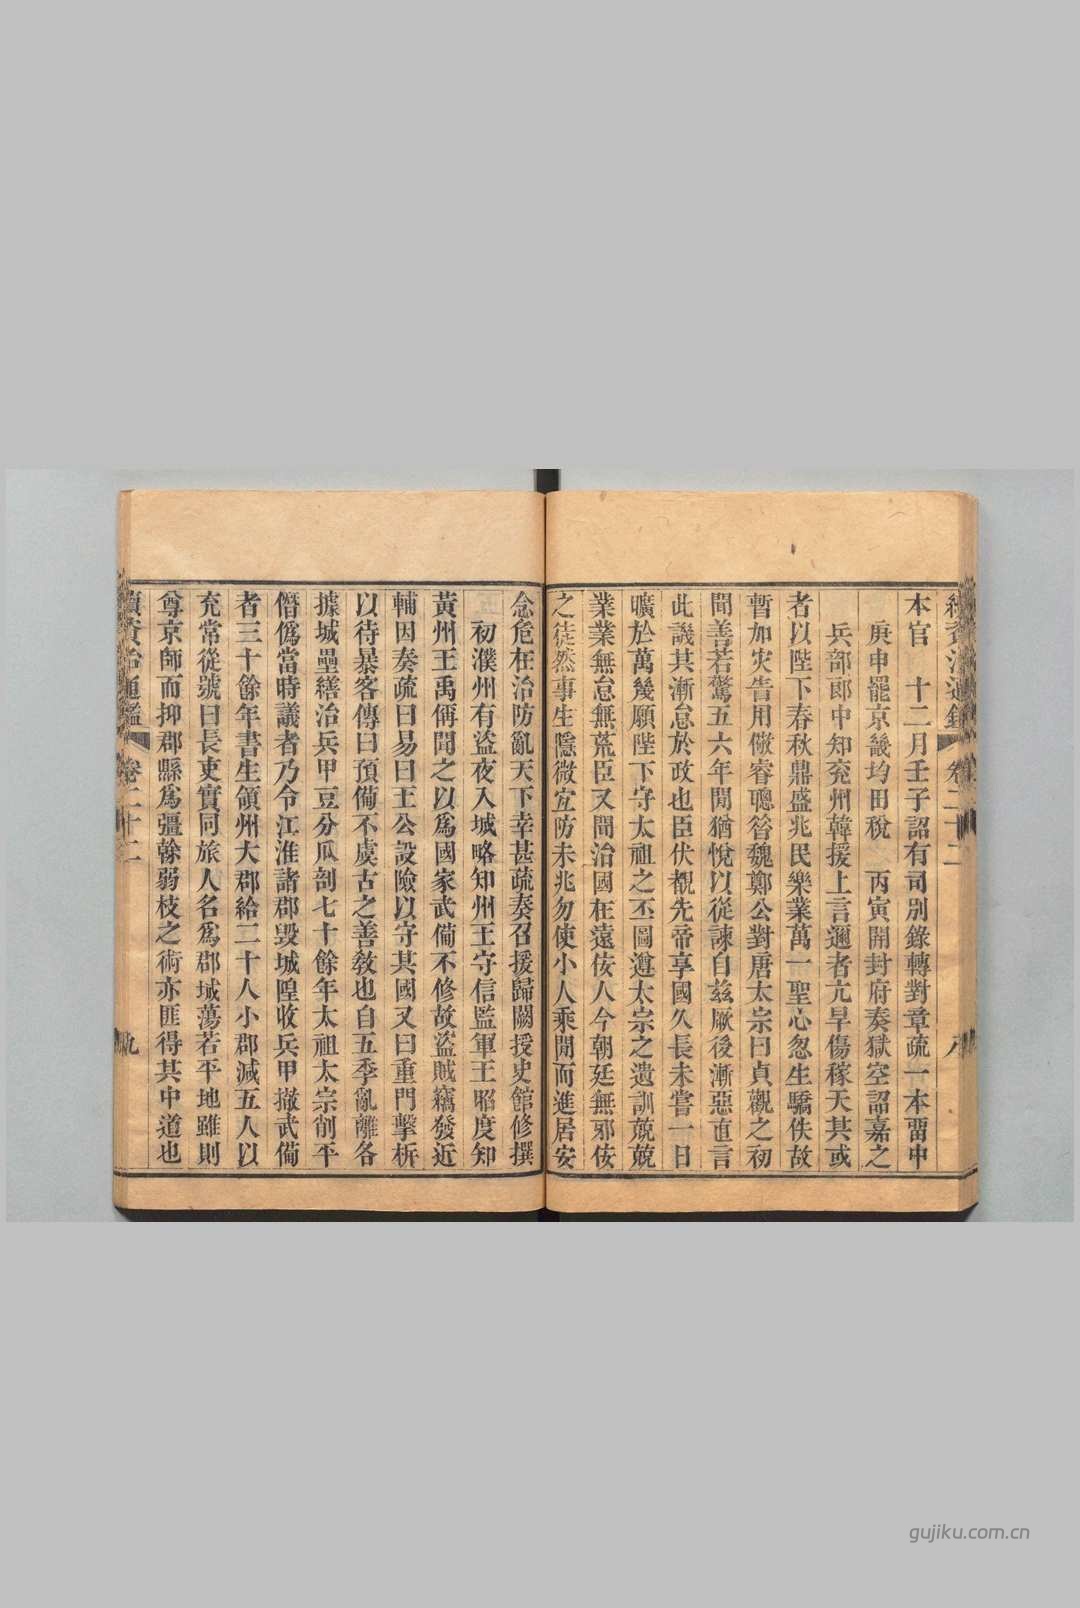 續資治通鑑 卷二十二 八
本官　十二月壬子詔有司別錄轉對章疏一本畱中
庚申罷京畿均田稅　丙寅開封府奏獄空詔嘉之
兵部郎中知兖州韓援上言邇者亢旱傷稼天其或
者以陛下春秋鼎盛兆民樂業萬一聖心忽生驕佚故
暫加灾告用儆睿聰昝魏鄭公對唐太宗曰貞觀之初
聞善若驚五六年閒猶悅以從諫自茲厥後漸惡直言
此譏其漸怠於政也臣伏覩先帝享國久長未嘗一日
曠於萬幾願陛下守太祖之丕圖遵太宗之遺訓兢兢
業業無怠無荒臣又聞治國在遠佞人今朝廷無邪佞
之徒然事生隱微宜防未兆勿使小人乘閒而進居安
念危在治防亂天下幸甚疏奏召援歸闕授史館修撰
初濮州有盜夜入城略知州王守信監軍王昭度知
黃州王禹偁聞之以爲國家武僃不修故盜賊竊發近
輔因奏疏曰易曰王公設險以守其國又曰重門擊柝
以待暴客傳曰預僃不虞古之善敎也自五季亂離各
據城壘繕治兵甲豆分瓜剖七十餘年太祖太宗削平
僭僞當時議者乃令江淮諸郡毀城隍收兵甲撤武僃
者三十餘年書生領州大郡給二十人小郡減五人以
充常從號曰長吏實同旅人名爲郡城蕩若平地雖則
尊京師而抑郡縣爲彊榦弱枝之術亦匪得其中道也
續資治通鑑 卷二十二 九
gujiku.com.cn